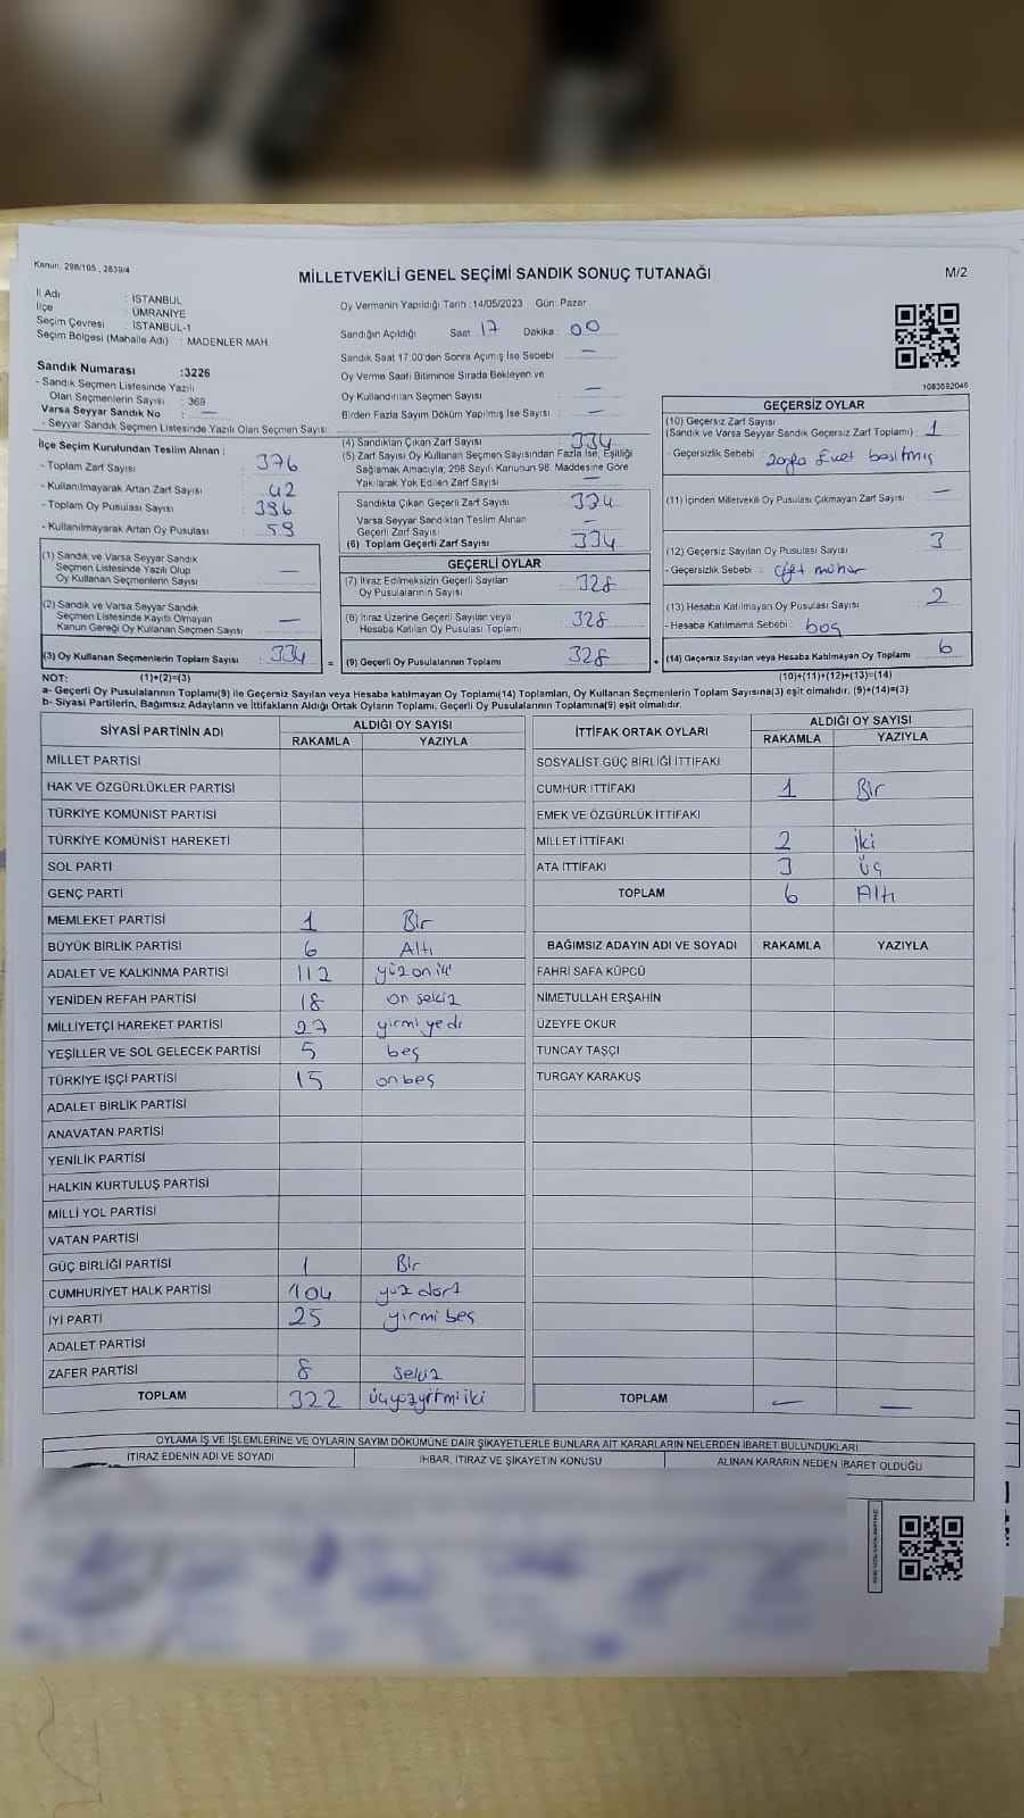 Kanun: 298/105, 2839/4
MİLLETVEKİLİ GENEL SEÇİMİ SANDIK SONUÇ TUTANAĞI
M/2
İl Adı : İSTANBUL
İlçe : ÜMRANİYE
Seçim Çevresi : İSTANBUL-1
Seçim Bölgesi (Mahalle Adı) : MADENLER MAH.
Sandık Numarası :3226
- Sandık Seçmen Listesinde Yazılı
Olan Seçmenlerin Sayısı : 369
Varsa Seyyar Sandık No : —
- Seyyar Sandık Seçmen Listesinde Yazılı Olan Seçmen Sayısı:
Oy Vermenin Yapıldığı Tarih :14/05/2023 Gün: Pazar
Sandığın Açıldığı Saat: 17 Dakika: 00
Sandık Saat 17:00'den Sonra Açılmış İse Sebebi —
Oy Verme Saati Bitiminde Sırada Bekleyen ve
Oy Kullandırılan Seçmen Sayısı —
Birden Fazla Sayım Döküm Yapılmış İse Sayısı —
1083692046
İlçe Seçim Kurulundan Teslim Alınan :
- Toplam Zarf Sayısı : 376
- Kullanılmayarak Artan Zarf Sayısı : 42
- Toplam Oy Pusulası Sayısı : 396
- Kullanılmayarak Artan Oy Pusulası : 59
(1) Sandık ve Varsa Seyyar Sandık
Seçmen Listesinde Yazılı Olup
Oy Kullanan Seçmenlerin Sayısı —
(2) Sandık ve Varsa Seyyar Sandık
Seçmen Listesinde Kayıtlı Olmayan
Kanun Gereği Oy Kullanan Seçmen Sayısı —
(3) Oy Kullanan Seçmenlerin Toplam Sayısı : 334 =
(4) Sandıktan Çıkan Zarf Sayısı 334
(5) Zarf Sayısı Oy Kullanan Seçmen Sayısından Fazla İse, Eşitliği
Sağlamak Amacıyla; 298 Sayılı Kanunun 98. Maddesine Göre
Yakılarak Yok Edilen Zarf Sayısı —
Sandıkta Çıkan Geçerli Zarf Sayısı 334
Varsa Seyyar Sandıktan Teslim Alınan
Geçerli Zarf Sayısı —
(6) Toplam Geçerli Zarf Sayısı 334
GEÇERLİ OYLAR
(7) İtiraz Edilmeksizin Geçerli Sayılan
Oy Pusulalarının Sayısı 328
(8) İtiraz Üzerine Geçerli Sayılan veya
Hesaba Katılan Oy Pusulası Toplamı 328
(9) Geçerli Oy Pusulalarının Toplamı 328 +
GEÇERSİZ OYLAR
(10) Geçersiz Zarf Sayısı
(Sandık ve Varsa Seyyar Sandık Geçersiz Zarf Toplamı) : 1
- Geçersizlik Sebebi : zarfa Evet basılmış
(11) İçinden Milletvekili Oy Pusulası Çıkmayan Zarf Sayısı : —
(12) Geçersiz Sayılan Oy Pusulası Sayısı : 3
- Geçersizlik Sebebi : çift mühür
(13) Hesaba Katılmayan Oy Pusulası Sayısı : 2
- Hesaba Katılmama Sebebi : boş
(14) Geçersiz Sayılan veya Hesaba Katılmayan Oy Toplamı 6
NOT: (1)+(2)=(3) (10)+(11)+(12)+(13)=(14)
a- Geçerli Oy Pusulalarının Toplamı(9) ile Geçersiz Sayılan veya Hesaba katılmayan Oy Toplamı(14) Toplamları, Oy Kullanan Seçmenlerin Toplam Sayısına(3) eşit olmalıdır. (9)+(14)=(3)
b- Siyasi Partilerin, Bağımsız Adayların ve İttifakların Aldığı Ortak Oyların Toplamı, Geçerli Oy Pusulalarının Toplamına(9) eşit olmalıdır.
SİYASİ PARTİNİN ADI ALDIĞI OY SAYISI
RAKAMLA YAZIYLA
MİLLET PARTİSİ
HAK VE ÖZGÜRLÜKLER PARTİSİ
TÜRKİYE KOMÜNİST PARTİSİ
TÜRKİYE KOMÜNİST HAREKETİ
SOL PARTİ
GENÇ PARTİ
MEMLEKET PARTİSİ 1 Bir
BÜYÜK BİRLİK PARTİSİ 6 Altı
ADALET VE KALKINMA PARTİSİ 112 yüz on iki
YENİDEN REFAH PARTİSİ 18 on sekiz
MİLLİYETÇİ HAREKET PARTİSİ 27 yirmi yedi
YEŞİLLER VE SOL GELECEK PARTİSİ 5 beş
TÜRKİYE İŞÇİ PARTİSİ 15 on beş
ADALET BİRLİK PARTİSİ
ANAVATAN PARTİSİ
YENİLİK PARTİSİ
HALKIN KURTULUŞ PARTİSİ
MİLLİ YOL PARTİSİ
VATAN PARTİSİ
GÜÇ BİRLİĞİ PARTİSİ 1 Bir
CUMHURİYET HALK PARTİSİ 104 yüz dört
İYİ PARTİ 25 yirmi beş
ADALET PARTİSİ
ZAFER PARTİSİ 8 sekiz
TOPLAM 322 üçyüzyirmi iki
İTTİFAK ORTAK OYLARI ALDIĞI OY SAYISI
RAKAMLA YAZIYLA
SOSYALİST GÜÇ BİRLİĞİ İTTİFAKI
CUMHUR İTTİFAKI 1 Bir
EMEK VE ÖZGÜRLÜK İTTİFAKI
MİLLET İTTİFAKI 2 İki
ATA İTTİFAKI 3 Üç
TOPLAM 6 Altı
BAĞIMSIZ ADAYIN ADI VE SOYADI RAKAMLA YAZIYLA
FAHRİ SAFA KÜPCÜ
NİMETULLAH ERŞAHİN
ÜZEYFE OKUR
TUNCAY TAŞÇI
TURGAY KARAKUŞ
TOPLAM — —
OYLAMA İŞ VE İŞLEMLERİNE VE OYLARIN SAYIM DÖKÜMÜNE DAİR ŞİKAYETLERLE BUNLARA AİT KARARLARIN NELERDEN İBARET BULUNDUKLARI
İTİRAZ EDENİN ADI VE SOYADI İHBAR, İTİRAZ VE ŞİKAYETİN KONUSU ALINAN KARARIN NEDEN İBARET OLDUĞU